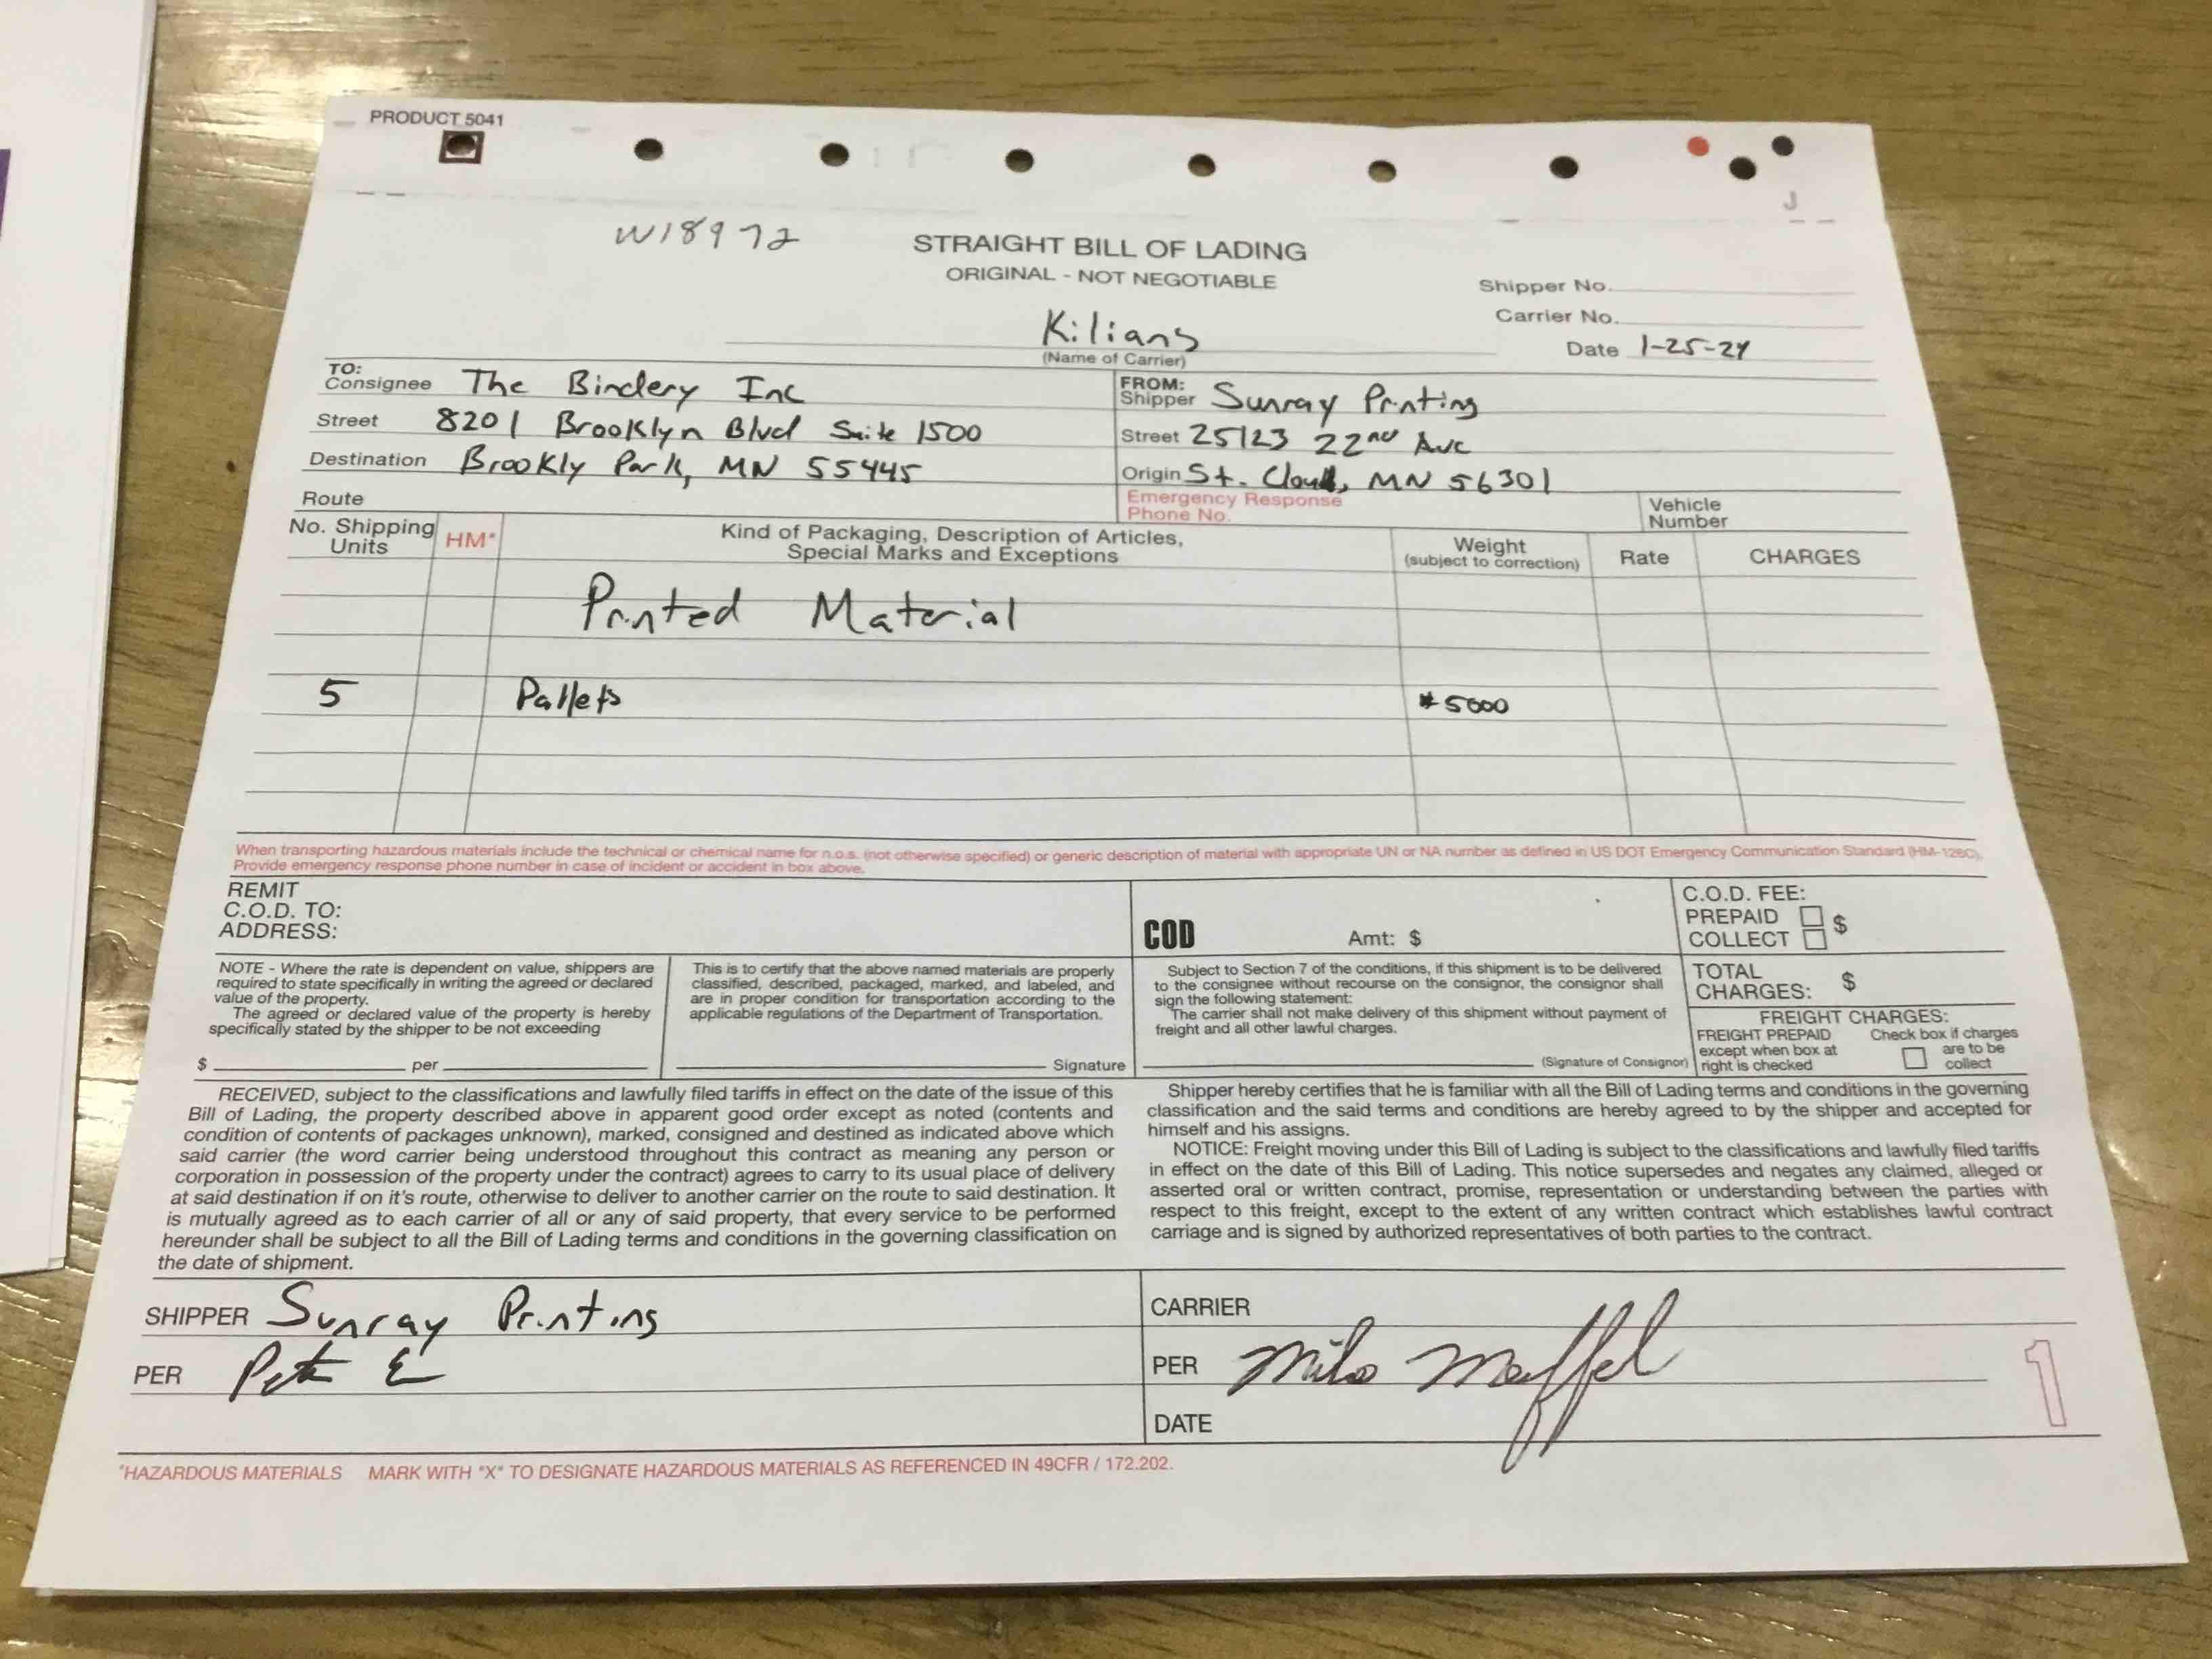 PRODUCT 5041
W18972
STRAIGHT BILL OF LADING
ORIGINAL - NOT NEGOTIABLE
Shipper No.
Carrier No.
Date 1-25-24
Kilians
(Name of Carrier)
TO:
Consignee The Bindery Inc
Street 8201 Brooklyn Blvd Suite 1500
Destination Brookly Park, MN 55445
FROM:
Shipper Sunray Printing
Street 25123 22nd Ave
Origin St. Cloud, MN 56301
Route
Emergency Response
Phone No.
Vehicle
Number
No. Shipping
Units
HM*
Kind of Packaging, Description of Articles,
Special Marks and Exceptions
Weight
(subject to correction)
Rate
CHARGES
Printed Material
5 Pallets #5000
When transporting hazardous materials include the technical or chemical name for n.o.s. (not otherwise specified) or generic description of material with appropriate UN or NA number as defined in US DOT Emergency Communication Standard (HM-126C).
Provide emergency response phone number in case of incident or accident in box above.
REMIT
C.O.D. TO:
ADDRESS:
COD Amt: $
C.O.D. FEE:
PREPAID
COLLECT $
NOTE - Where the rate is dependent on value, shippers are
required to state specifically in writing the agreed or declared
value of the property.
The agreed or declared value of the property is hereby
specifically stated by the shipper to be not exceeding
$ per
This is to certify that the above named materials are properly
classified, described, packaged, marked, and labeled, and
are in proper condition for transportation according to the
applicable regulations of the Department of Transportation.
Signature
Subject to Section 7 of the conditions, if this shipment is to be delivered
to the consignee without recourse on the consignor, the consignor shall
sign the following statement:
The carrier shall not make delivery of this shipment without payment of
freight and all other lawful charges.
(Signature of Consignor)
TOTAL
CHARGES: $
FREIGHT CHARGES:
FREIGHT PREPAID
except when box at
right is checked
Check box if charges
are to be
collect
RECEIVED, subject to the classifications and lawfully filed tariffs in effect on the date of the issue of this
Bill of Lading, the property described above in apparent good order except as noted (contents and
condition of contents of packages unknown), marked, consigned and destined as indicated above which
said carrier (the word carrier being understood throughout this contract as meaning any person or
corporation in possession of the property under the contract) agrees to carry to its usual place of delivery
at said destination if on it's route, otherwise to deliver to another carrier on the route to said destination. It
is mutually agreed as to each carrier of all or any of said property, that every service to be performed
hereunder shall be subject to all the Bill of Lading terms and conditions in the governing classification on
the date of shipment.
Shipper hereby certifies that he is familiar with all the Bill of Lading terms and conditions in the governing
classification and the said terms and conditions are hereby agreed to by the shipper and accepted for
himself and his assigns.
NOTICE: Freight moving under this Bill of Lading is subject to the classifications and lawfully filed tariffs
in effect on the date of this Bill of Lading. This notice supersedes and negates any claimed, alleged or
asserted oral or written contract, promise, representation or understanding between the parties with
respect to this freight, except to the extent of any written contract which establishes lawful contract
carriage and is signed by authorized representatives of both parties to the contract.
SHIPPER Sunray Printing
PER Pete E
CARRIER
PER
DATE
1
*HAZARDOUS MATERIALS MARK WITH "X" TO DESIGNATE HAZARDOUS MATERIALS AS REFERENCED IN 49CFR / 172.202.